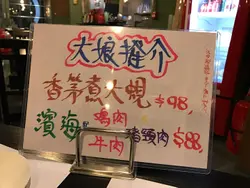 大娘推介
香茅煮大蜆 $98,
濱海
鸡肉
猪頸肉 $88,
牛肉